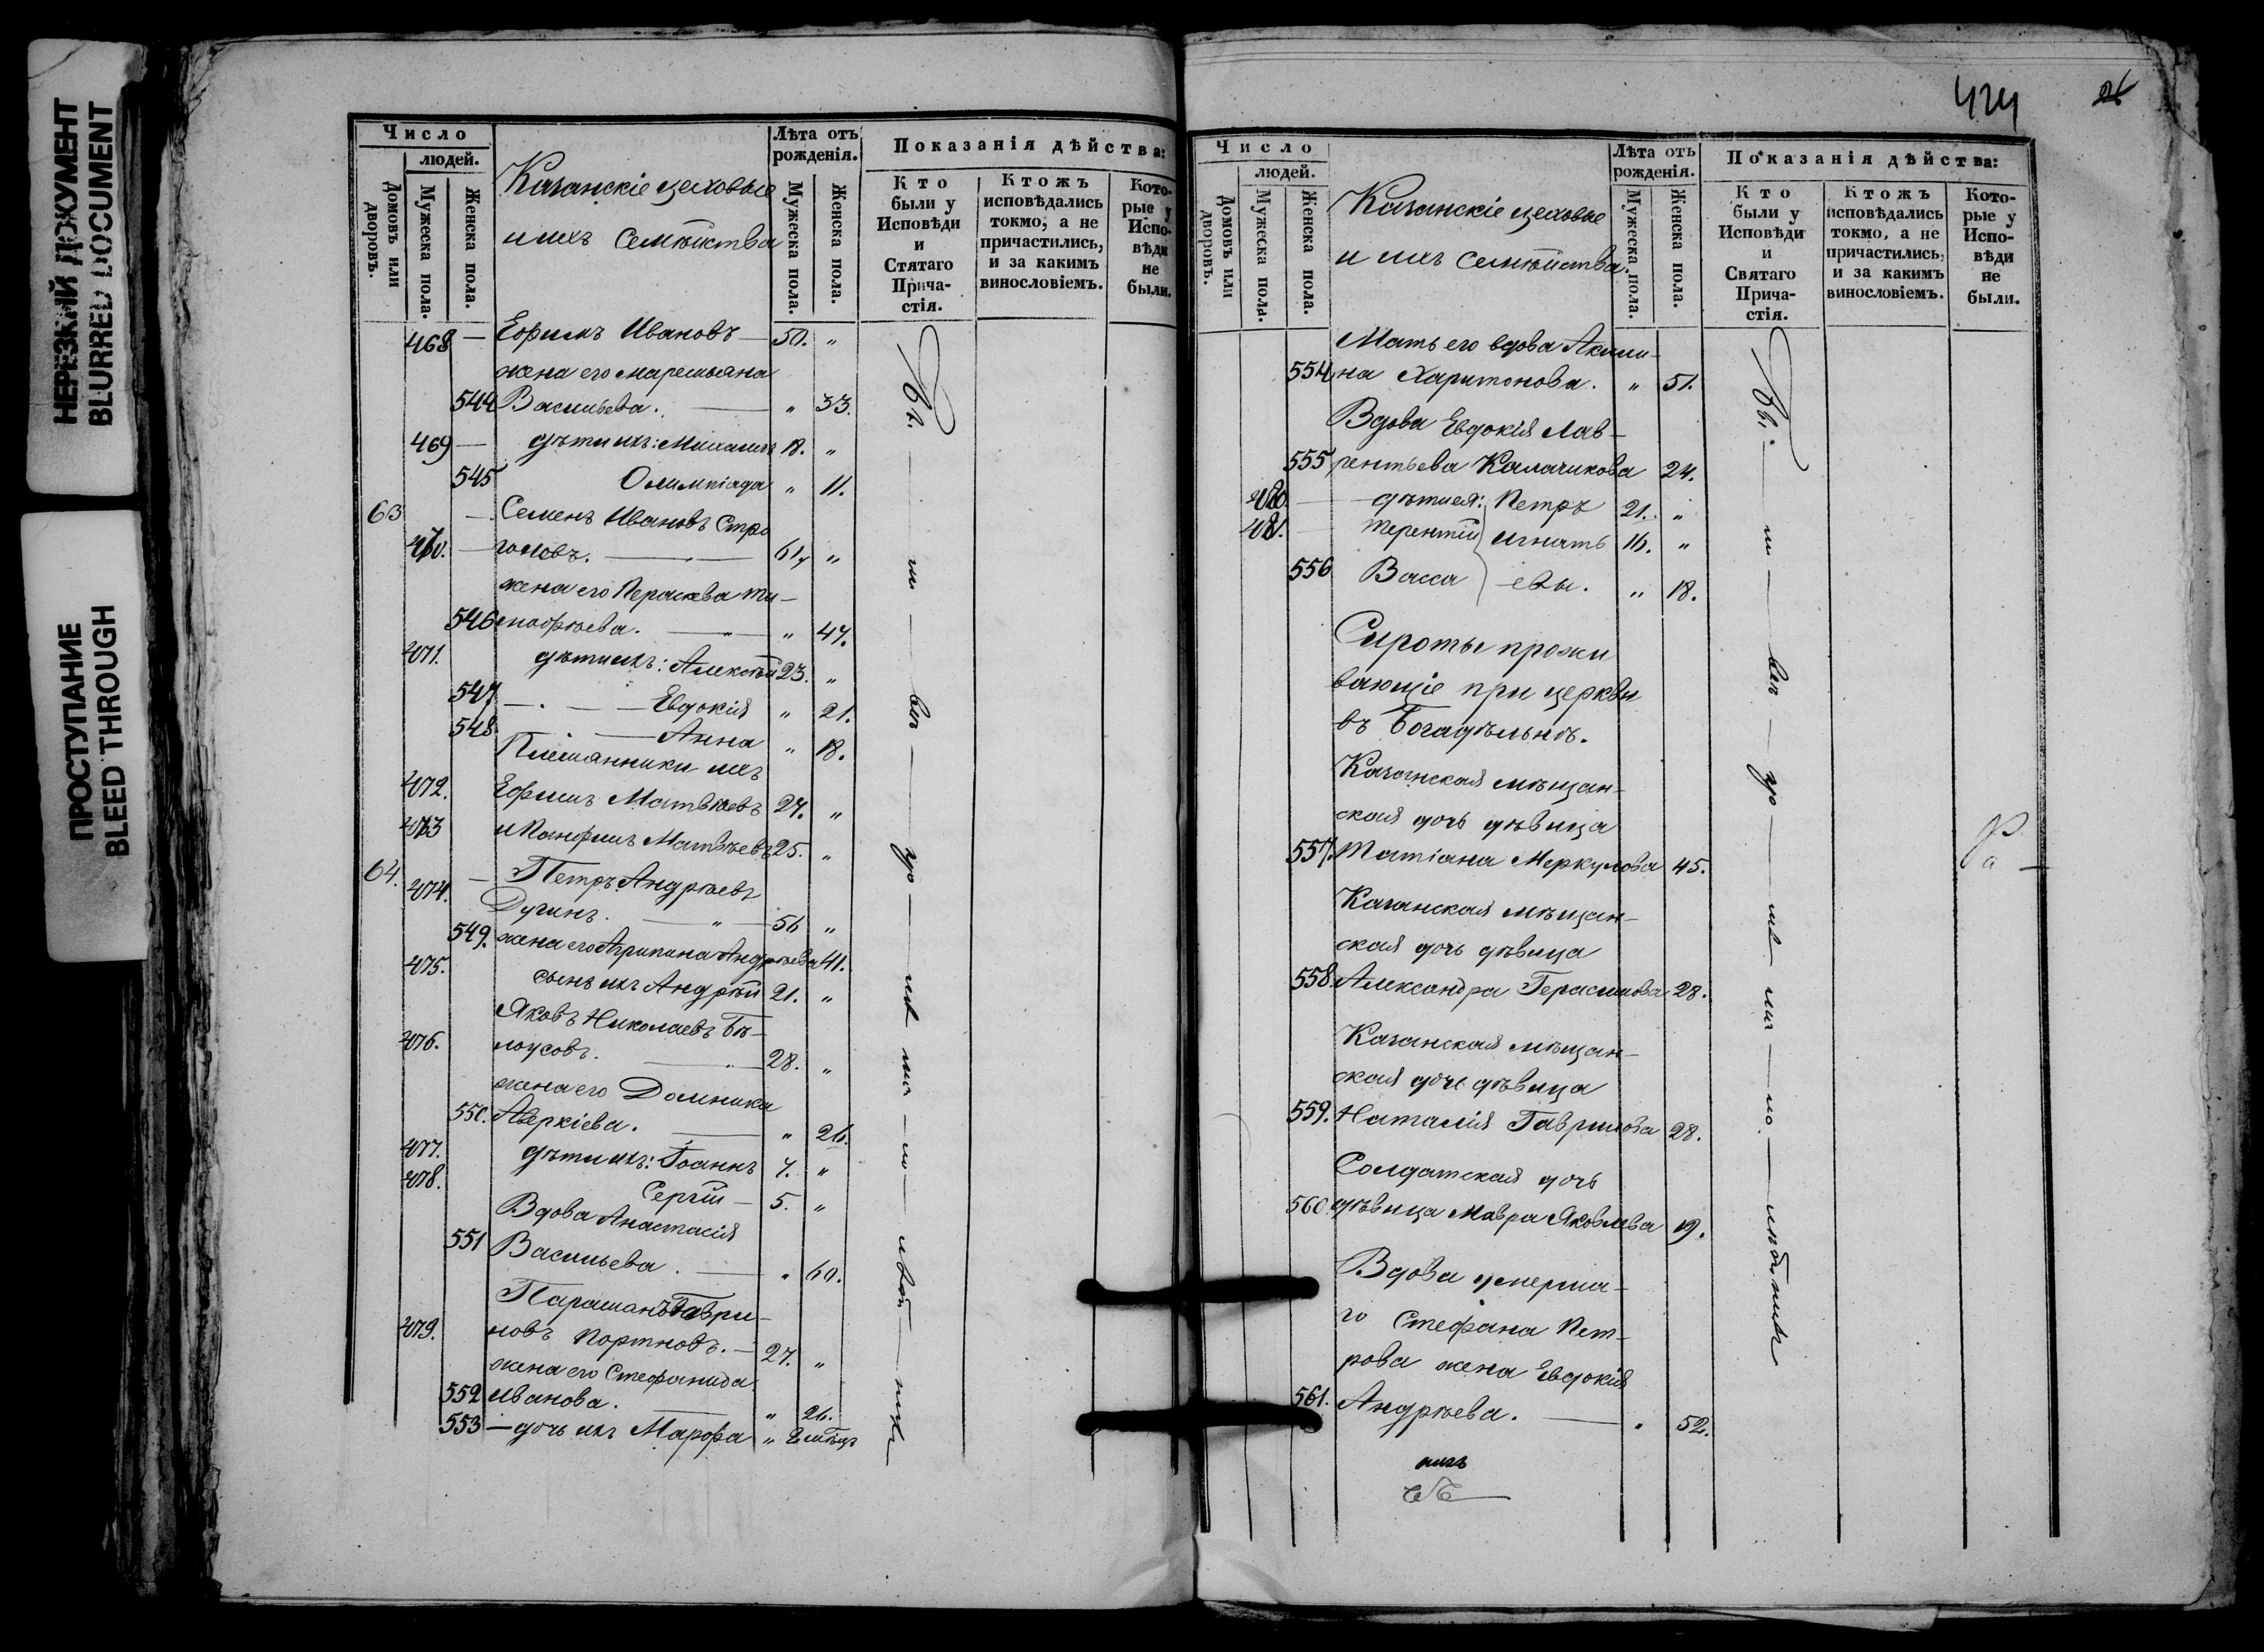 НЕРЕЗКИЙ ДОКУМЕНТ
BLURRED DOCUMENT
ПРОСТУПАНИЕ
BLEED THROUGH
Число
людей.
Домовъ или дворовъ.
Мужеска пола.
Женска пола.
Казанскіе цеховые
и ихъ Семѣйства
Лѣта отъ рожденія.
Мужеска пола.
Женска пола.
Показанія дѣйства:
Кто были у Исповѣди и Стятаго Прича-стія.
Ктожъ исповѣдались токмо, а не причастились, и за какимъ винословіемъ.
Кото-рые у Испо-вѣди не были.
468 — Ефимъ Ивановъ — 50. "
жена его Маремьяна
544 Васильева. — " 33.
469 — дѣти ихъ: Михаилъ 18. "
545 Олимпіада " 11.
63 — Семенъ Ивановъ Стро
470. — гоновъ. — 61 "
жена его Параскева Ти-
546 мофѣева. — " 47.
471. дѣти ихъ: Алексѣй 23. "
547 — Евдокія " 21.
548 — Анна " 18.
Племянники ихъ
472. Ефимъ Матвѣевъ 27. "
473 и Панфилъ Матвѣевъ 25. "
64. — Петръ Андрѣевъ
474. Дугинъ. — " — 56 "
549. жена его Агрипина Андрѣева 41.
475. сынъ ихъ Андрѣй 21. "
Яковъ Николаевъ Бѣ-
476. лоусовъ. — 28. "
жена его Домника
550. Аверкіева. — " 26.
477. дѣти ихъ: Іоаннъ 7. "
478. Сергій — 5. "
Вдова Анастасія
551 Васильева. — " 60.
479. новъ Портновъ. — 27. "
жена его Стефанида
552 Иванова. — " 26.
553 — дочь ихъ Марфа "
424 26
Число
людей.
Домовъ или дворовъ.
Мужеска пола.
Женска пола.
Казанскіе цеховые
и ихъ семѣйства.
Лѣта отъ рожденія.
Мужеска пола.
Женска пола.
Показанія дѣйства:
Кто были у Исповѣди и Святаго Прича-стія.
Ктожъ исповѣдались токмо, а не причастились, и за какимъ винословіемъ.
Кото-рые у Испо-вѣди не были.
Мать его вдова Акили-
554 на Харитонова. " 51.
Вдова Евдокія Лав-
555 рентьева Калачикова 24.
480. — дѣти ея: Петръ 21. "
481. — Терентій Игнать 16. "
556 Васса — евы. " 18.
Сироты прожи
вающіе при церкви
въ Богадѣльнѣ.
Казанская мѣщан-
ская дочь дѣвица
557. Татіана Меркулова 45.
Казанская мѣщан-
ская дочь дѣвица
558 Александра Герасимова 28.
Казанская мѣщан-
ская дочь дѣвица
559. Наталія Гаврилова 28.
Солдатская дочь
560 дѣвица Мавра Яковлева 19.
Вдова умерша-
го Стефана Пет-
рова жена Евдокія
561. Андрѣева. — " 52.